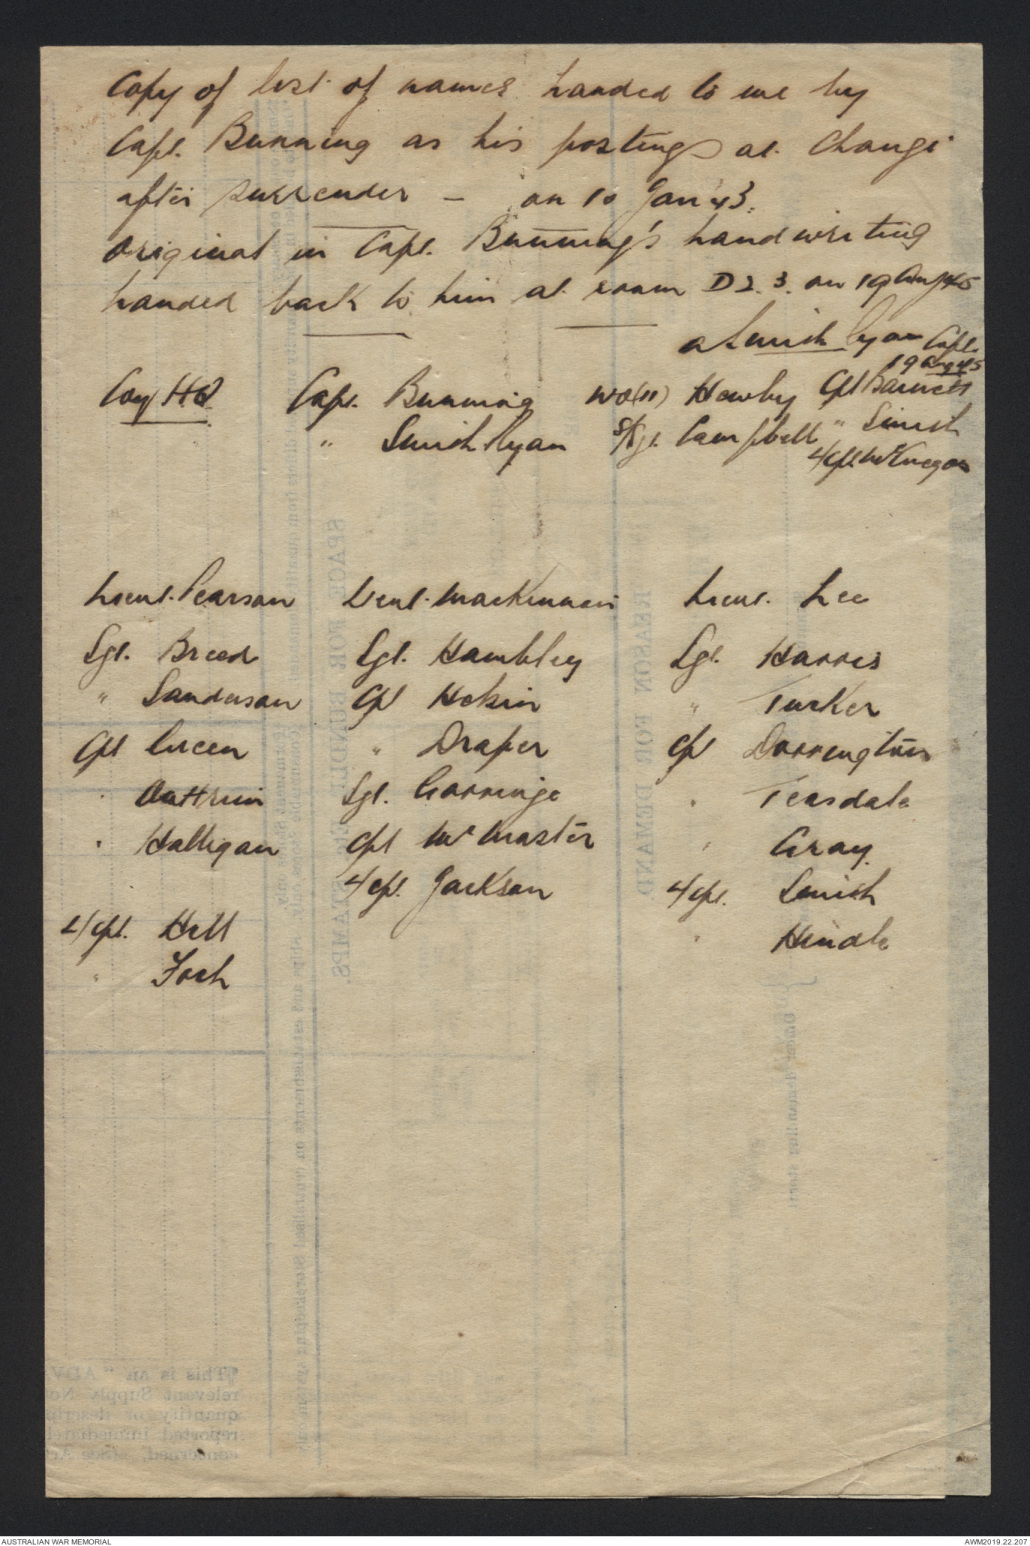 Copy of list of names handed to me by
Capt. Bunning as his postings at Changi
after surrender — on 10 Jan 43.
Original in Capt. Bunning's handwriting
handed back to him at room D 2. 3. on 19 Aug 45
Smith Ryan Capt.
19 Aug 45
Coy HQ Capt. Bunning WO(II) Hewby Cpl Barnett
" Smith Ryan S/Sgt. Campbell " Smith
L/Cpl.
Lieut. Pearson Lieut. MacKinnon Lieut. Lee
Sgt. Breed Sgt. Hambley Sgt. Harris
" Sanderson Cpl Hekin " Tucker
Cpl Green " Draper Cpl Dorrington
" Sgt. Gorringe " Teasdale
" Halligan Cpl McMaster " Gray
L/Cpl. Jackson L/Cpl. Smith
L/Cpl. Hill " Hindle
"
SPACE FOR BUNDLE STAMPS.
REASON FOR DEMAND
This is an "ADV
relevant Supply No
quantity or descri
reported immediatel
concerned. (See A
AUSTRALIAN WAR MEMORIAL
AWM2019.22.207